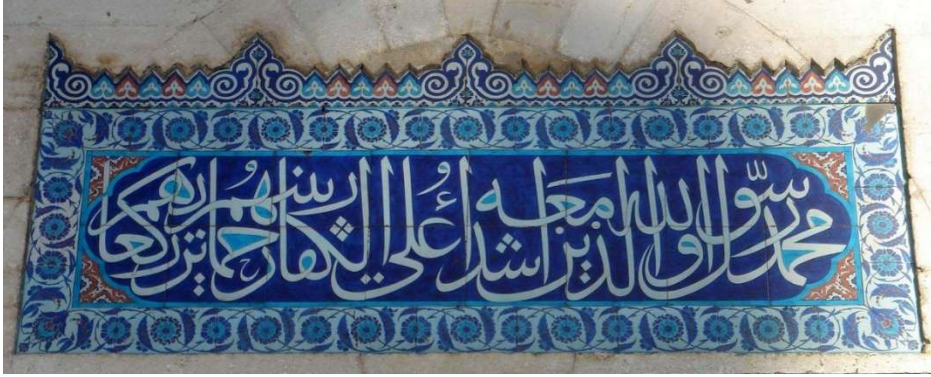 محمد رسول الله والذين معه اشداء على الكفار رحماء بينهم تريهم ركعا